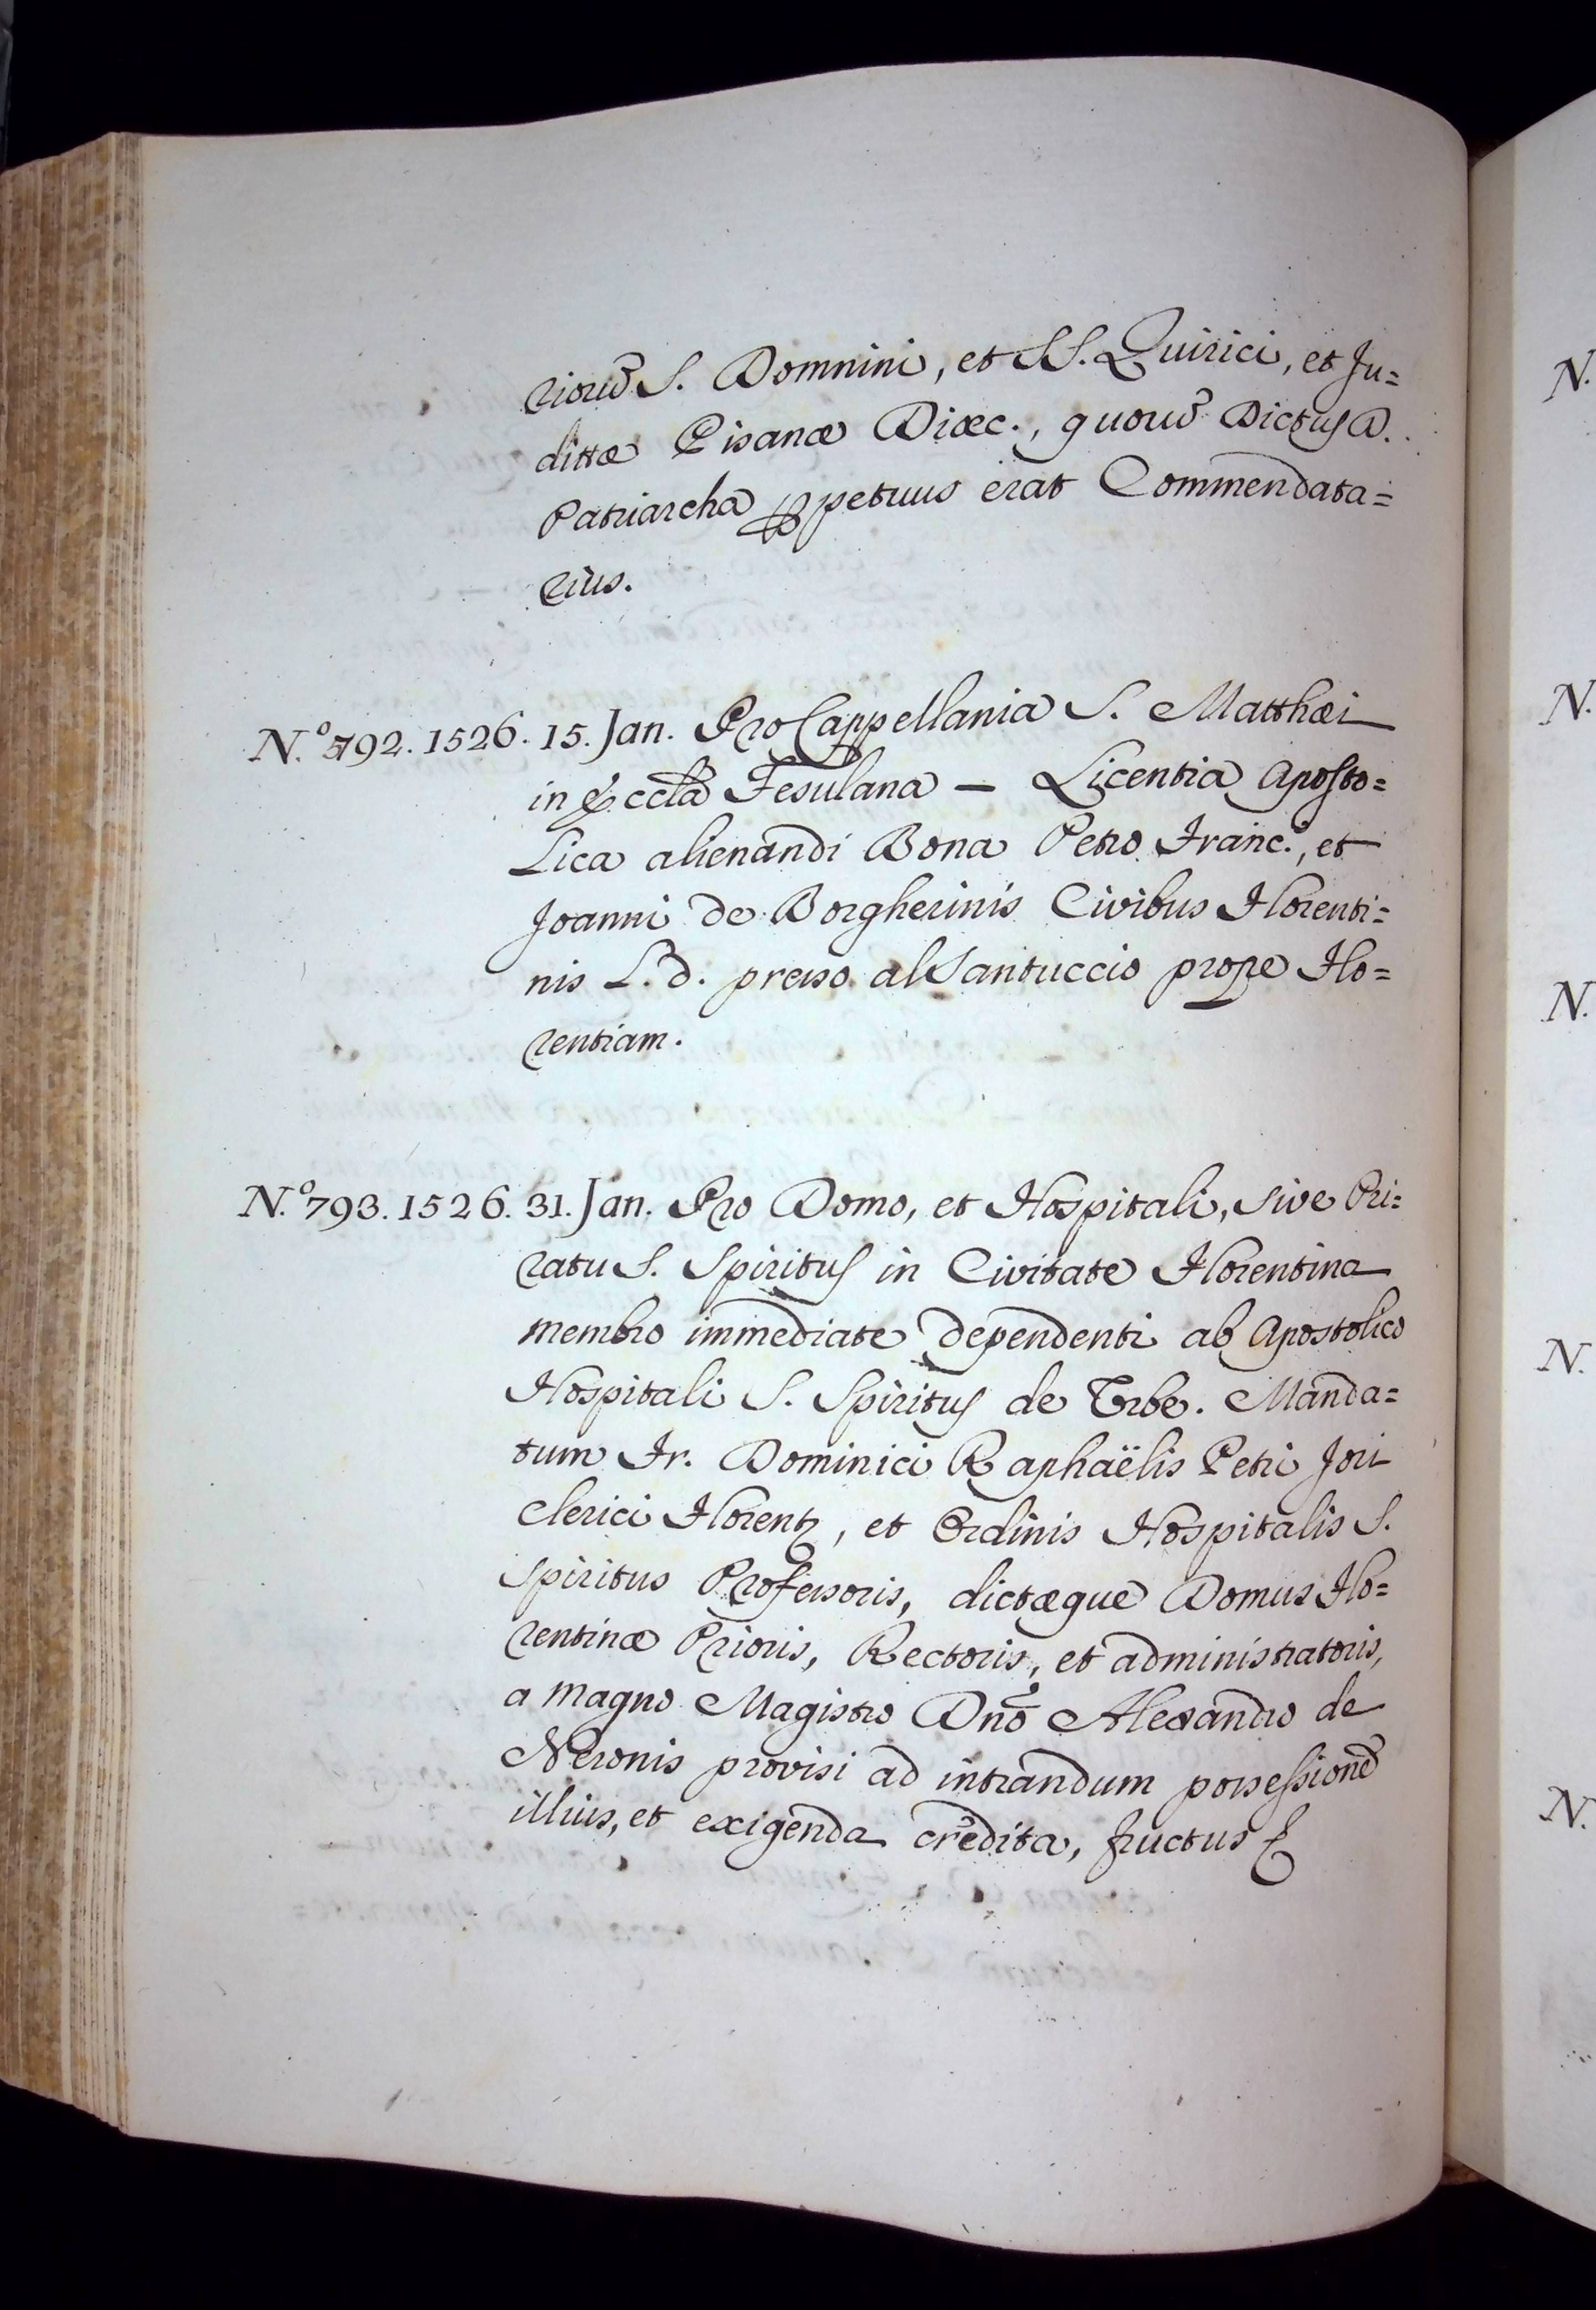 riorũ S. Domnini, et SS. Quirici, et Ju=
dittæ Pisanæ Diœc., quorũ Dictus D.
Patriarcha ꝑpetuus erat Commendata=
rius.
N.º 792. 1526. 15. Jan. Pro Cappellania S. Matthæi
in Eccla Fesulana — Licentia Aposto=
Lica alienandi Bona Petro Franc.º, et
Joanni de Borgherinis Civibus Florenti=
nis L. d. presso al Santuccio prope Flo=
rentiam.
N.º 793. 1526. 31. Jan. Pro Domo, et Hospitali, sive Pri=
ratu S. Spiritus in Civitate Florentina
membro immediate dependenti ab Apostolico
Hospitali S. Spiritus de Urbe. Manda=
tum Fr. Dominici Raphaëlis Petri Jori
Clerici Florent., et Ordinis Hospitalis S.
Spiritus Professoris, dictæque Domus Flo=
rentinæ Prioris, Rectoris, et administratoris,
a magno Magistro Dnõ Alexandro de
Neronis provisi ad intrandum possessionẽ
illius, et exigenda credita, fructus &
N.
N.
N.
N.
N.